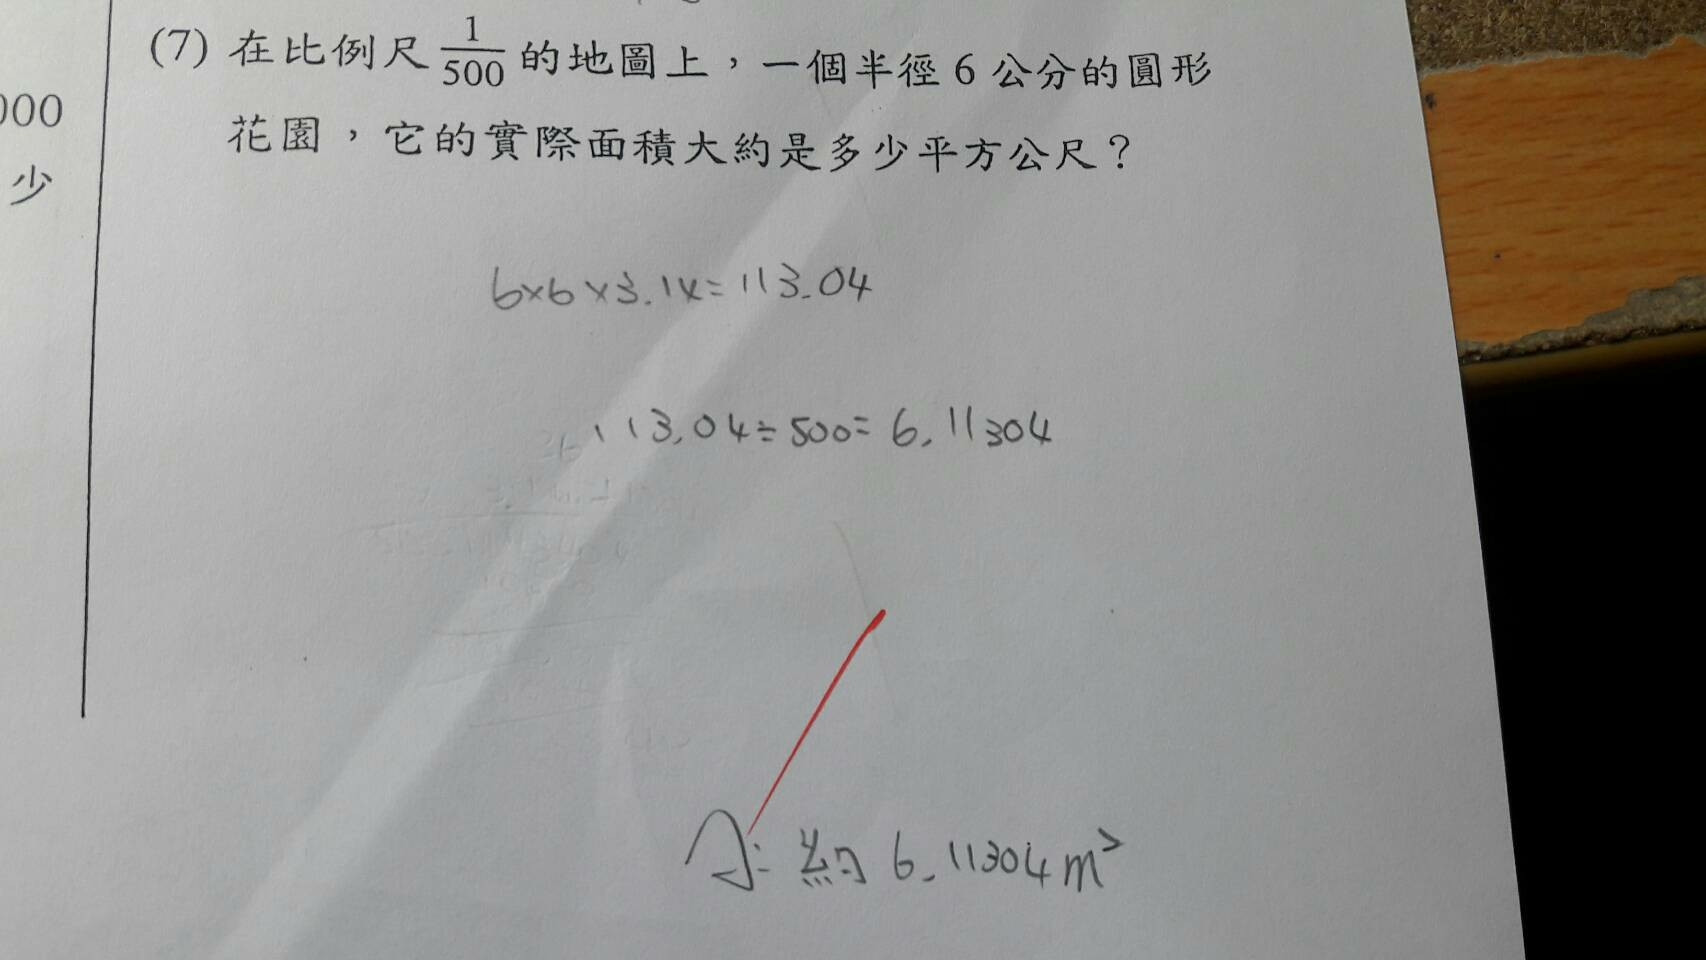 000
少
(7) 在比例尺 1/500 的地圖上，一個半徑 6 公分的圓形
花園，它的實際面積大約是多少平方公尺？
6×6×3.14=113.04
113.04÷500=6.11304
A: 約 6.11304 m²